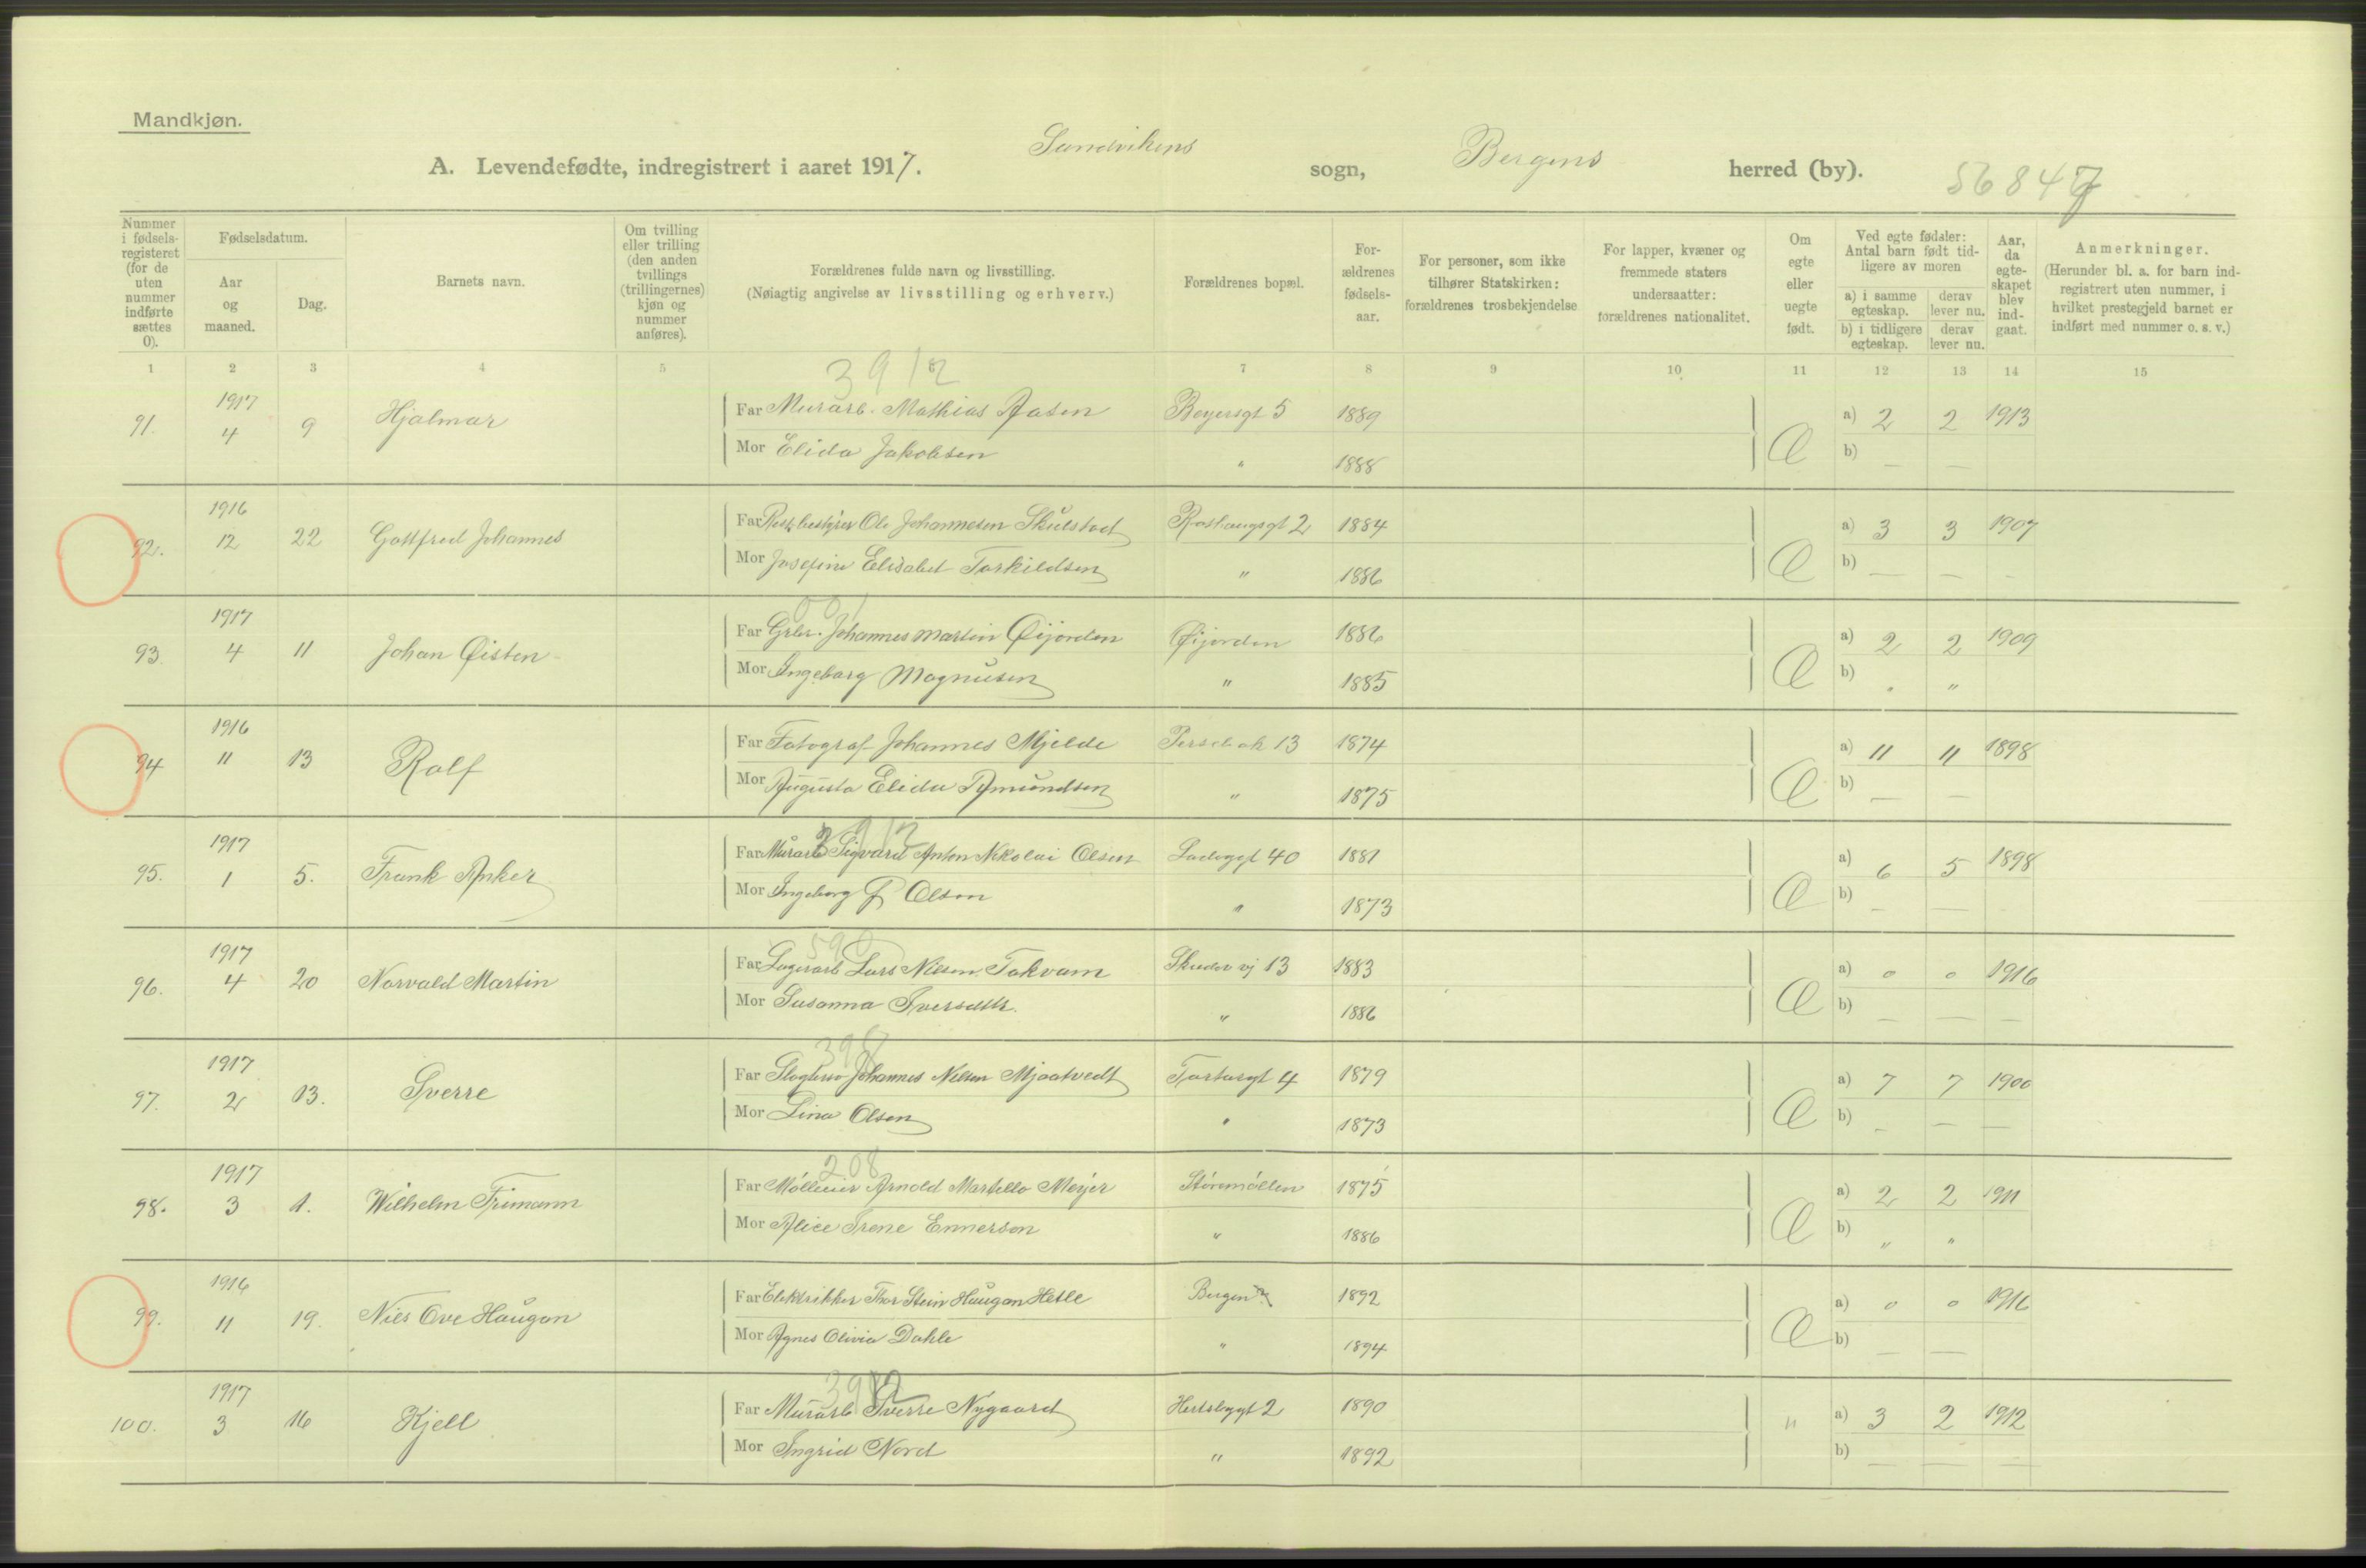 Mandkjøn.
A. Levendefødte, indregistrert i aaret 1917. Sandvikens sogn, Bergens herred (by). 56847
Nummer i fødsels-registeret (for de uten nummer indførte sættes 0).
Fødselsdatum.
Aar og maaned.
Dag.
Barnets navn.
Om tvilling eller trilling (den anden tvillings (trillingernes) kjøn og nummer anføres).
Forældrenes fulde navn og livsstilling.
(Nøiagtig angivelse av livsstilling og erhverv.)
Forældrenes bopæl.
For-ældrenes fødsels-aar.
For personer, som ikke tilhører Statskirken: forældrenes trosbekjendelse
For lapper, kvæner og fremmede staters undersaatter: forældrenes nationalitet.
Om egte eller uegte født.
Ved egte fødsler: Antal barn født tid-ligere av moren
a) i samme egteskap.
derav lever nu.
b) i tidligere egteskap.
derav lever nu.
Aar, da egte-skapet blev ind-gaat.
Anmerkninger.
(Herunder bl. a. for barn ind-registrert uten nummer, i hvilket prestegjeld barnet er indført med nummer o. s. v.)
1 2 3 4 5 6 7 8 9 10 11 12 13 14 15
3912
91. 1917 4 9 Hjalmar Far Murarb. Mathias Aasen 1889 a) 2 2 1913
Mor Elida Jakobsen " 1888 Æ b) — —
92. 1916 12 22 Gottfred Johannes Far Ole Johannesen Skulstad Rosthaugsgt 2 1884 a) 3 3 1907
Mor Josefine Elisabet Torkildsen " 1886 Æ b) — — -
001
93 1917 4 11 Johan Øisten Far Grbr. Johannes Martin Øijorden Øijorden 1886 a) 2 2 1909
Mor Ingeborg Magnusen " 1885 Æ b) " "
94 1916 11 13 Rolf Far Fotograf Johannes Mjelde 13 1874 a) 11 11 1898
Mor Augusta Elida Amundsen " 1875 Æ b) — —
3912
95. 1917 1 5. Frank Anker Far Murarb Sigvard Anton Nikolai Olsen Ladeggt 40 1881 a) 6 5 1898
Mor Ingeborg Olsen " 1873 Æ b) — —
590
96. 1917 4 20 Norvald Martin Far Lagerarb Lars Nilsen Tokvam 13 1883 a) 0 0 1916
Mor Susanna Iversdtr. " 1886 Æ b) — — —
398
97. 1917 2 13. Sverre Far Johannes Nilsen Mjaatvedt 4 1879 a) 7 7 1900
Mor Lina Olsen " 1873 Æ b) — — —
208
98. 1917 3 1. Wilhelm Far Arnold Martello Meyer Støremøllen 1875 a) 2 2 1911
Mor Alice Irene Ennerson " 1886 Æ b) " "
99. 1916 11 19. Nils Ove Haugan Far Elektrikker Thor Stein Haugan Hetle Bergen 1892 a) 0 0 1916
Mor Agnes Olivia Dahle " 1894 Æ b) — —
3912
100. 1917 3 16 Kjell Far Murarb Sverre Nygaard 2 1890 " a) 3 2 1912
Mor Ingrid Nord " 1892 b) — — —